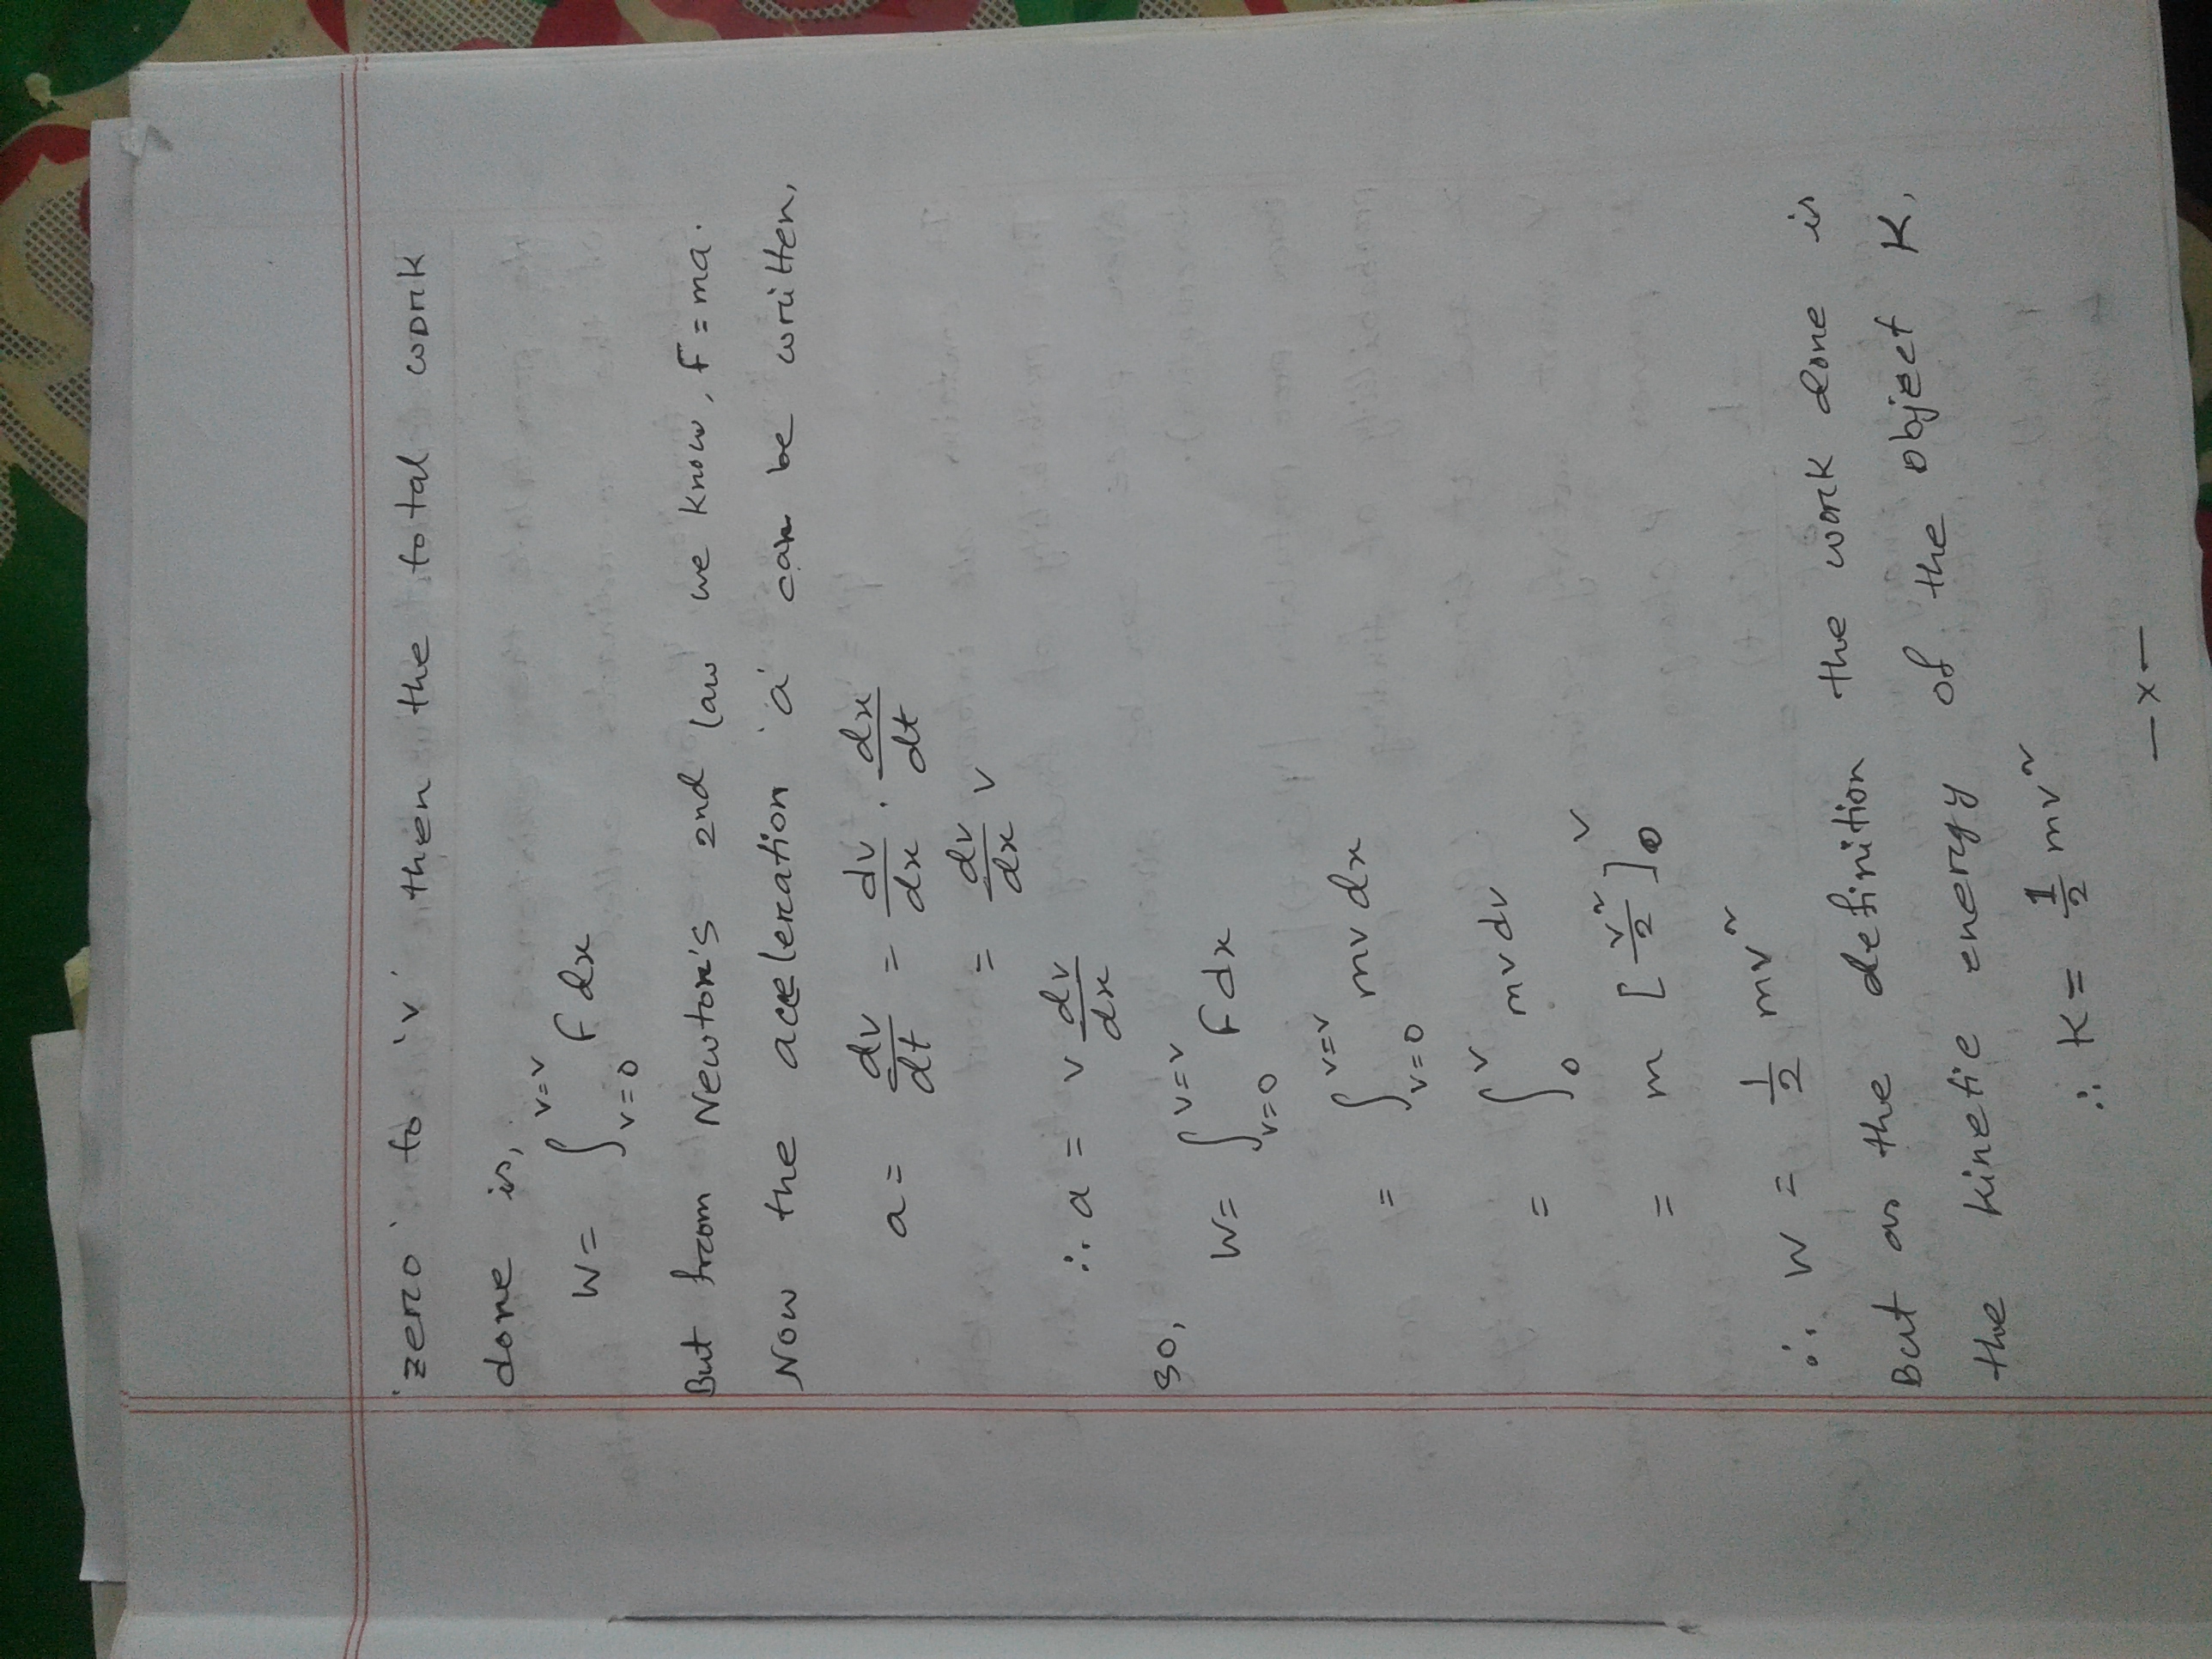 'zero' to 'v' then the total work
done is,
W = ∫_{v=0}^{v=v} F dx
But from Newton's 2nd law we know, F = ma.
Now the acceleration 'a' can be written,
a = dv/dt = dv/dx . dx/dt
= dv/dx v
∴ a = v dv/dx
so,
W = ∫_{v=0}^{v=v} F dx
= ∫_{v=0}^{v=v} mv dx
= ∫_0^v mv dv
= m [v²/2]_0^v
∴ W = 1/2 mv²
But as the definition the work done is
the kinetic energy of the object K,
∴ K = 1/2 mv²
—x—